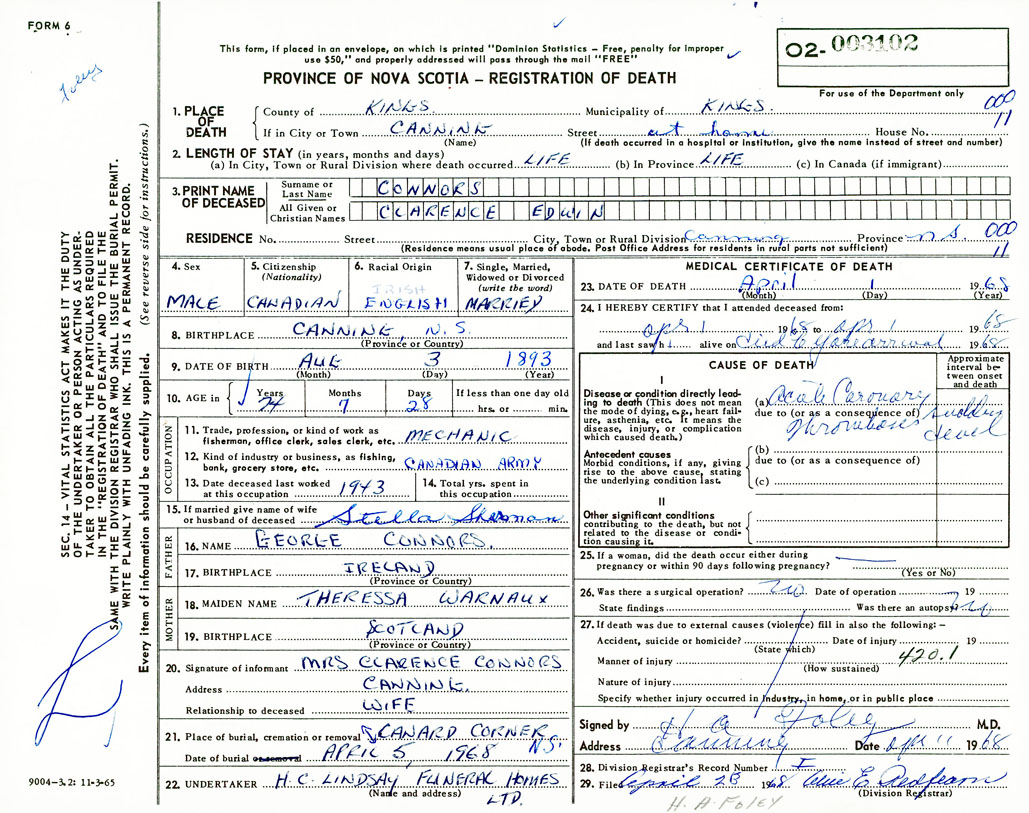 FORM 6
Foley
This form, if placed in an envelope, on which is printed "Dominion Statistics – Free, penalty for improper
use $50," and properly addressed will pass through the mail "FREE"
PROVINCE OF NOVA SCOTIA – REGISTRATION OF DEATH
O2- 003102
For use of the Department only
000
11
1. PLACE OF DEATH County of KINGS. Municipality of KINGS.
If in City or Town CANNING Street at home House No.
(Name) (If death occurred in a hospital or institution, give the name instead of street and number)
2. LENGTH OF STAY (in years, months and days)
(a) In City, Town or Rural Division where death occurred LIFE (b) In Province LIFE (c) In Canada (if immigrant)
3. PRINT NAME OF DECEASED Surname or Last Name CONNORS
All Given or Christian Names CLARENCE EDWIN
RESIDENCE No. Street City, Town or Rural Division Canning Province N.S. 000
(Residence means usual place of abode. Post Office Address for residents in rural parts not sufficient) 11
4. Sex MALE
5. Citizenship (Nationality) CANADIAN
6. Racial Origin IRISH ENGLISH
7. Single, Married, Widowed or Divorced (write the word) MARRIED
8. BIRTHPLACE CANNING, N.S.
(Province or Country)
9. DATE OF BIRTH AUG 3 1893
(Month) (Day) (Year)
10. AGE in Years 74 Months 7 Days 28 If less than one day old hrs. or min.
OCCUPATION
11. Trade, profession, or kind of work as fisherman, office clerk, sales clerk, etc. MECHANIC
12. Kind of industry or business, as fishing, bank, grocery store, etc. CANADIAN ARMY
13. Date deceased last worked at this occupation 1943
14. Total yrs. spent in this occupation
15. If married give name of wife or husband of deceased Stella Sherman
FATHER
16. NAME GEORGE CONNORS.
17. BIRTHPLACE IRELAND
(Province or Country)
MOTHER
18. MAIDEN NAME THERESSA WARNAUX
19. BIRTHPLACE SCOTLAND
(Province or Country)
20. Signature of informant MRS CLARENCE CONNORS
Address CANNING.
Relationship to deceased WIFE
21. Place of burial, cremation or removal CANARD CORNER N.S.
Date of burial or removal APRIL 5, 1968
22. UNDERTAKER H.C. LINDSAY FUNERAL HOMES LTD.
(Name and address)
MEDICAL CERTIFICATE OF DEATH
23. DATE OF DEATH April 1 1968
(Month) (Day) (Year)
24. I HEREBY CERTIFY that I attended deceased from:
Apr 1 1968 to Apr 1 1968
and last saw h alive on Died before arrival 1968
CAUSE OF DEATH
Approximate interval between onset and death
I
Disease or condition directly leading to death (This does not mean the mode of dying, e.g., heart failure, asthenia, etc. It means the disease, injury, or complication which caused death.)
(a) Acute Coronary
due to (or as a consequence of) Thrombosis
sudden
Antecedent causes
Morbid conditions, if any, giving rise to the above cause, stating the underlying condition last.
(b)
due to (or as a consequence of)
(c)
II
Other significant conditions
contributing to the death, but not related to the disease or condition causing it.
25. If a woman, did the death occur either during pregnancy or within 90 days following pregnancy?
(Yes or No)
26. Was there a surgical operation? No. Date of operation 19
State findings Was there an autopsy No
27. If death was due to external causes (violence) fill in also the following: –
Accident, suicide or homicide? Date of injury 19
(State which)
Manner of injury 420.1
(How sustained)
Nature of injury
Specify whether injury occurred in Industry, in home, or in public place
Signed by H A Foley M.D.
Address Canning Date Apr 11 1968
28. Division Registrar's Record Number I
29. Filed April 28 1968 E. Redfearn
(Division Registrar)
H. A. FOLEY
SEC. 14 – VITAL STATISTICS ACT MAKES IT THE DUTY
OF THE UNDERTAKER OR PERSON ACTING AS UNDER-
TAKER TO OBTAIN ALL THE PARTICULARS REQUIRED
IN THE "REGISTRATION OF DEATH" AND TO FILE THE
SAME WITH THE DIVISION REGISTRAR WHO SHALL ISSUE THE BURIAL PERMIT.
WRITE PLAINLY WITH UNFADING INK. THIS IS A PERMANENT RECORD.
Every item of information should be carefully supplied. (See reverse side for instructions.)
9004–3.2: 11-3-65